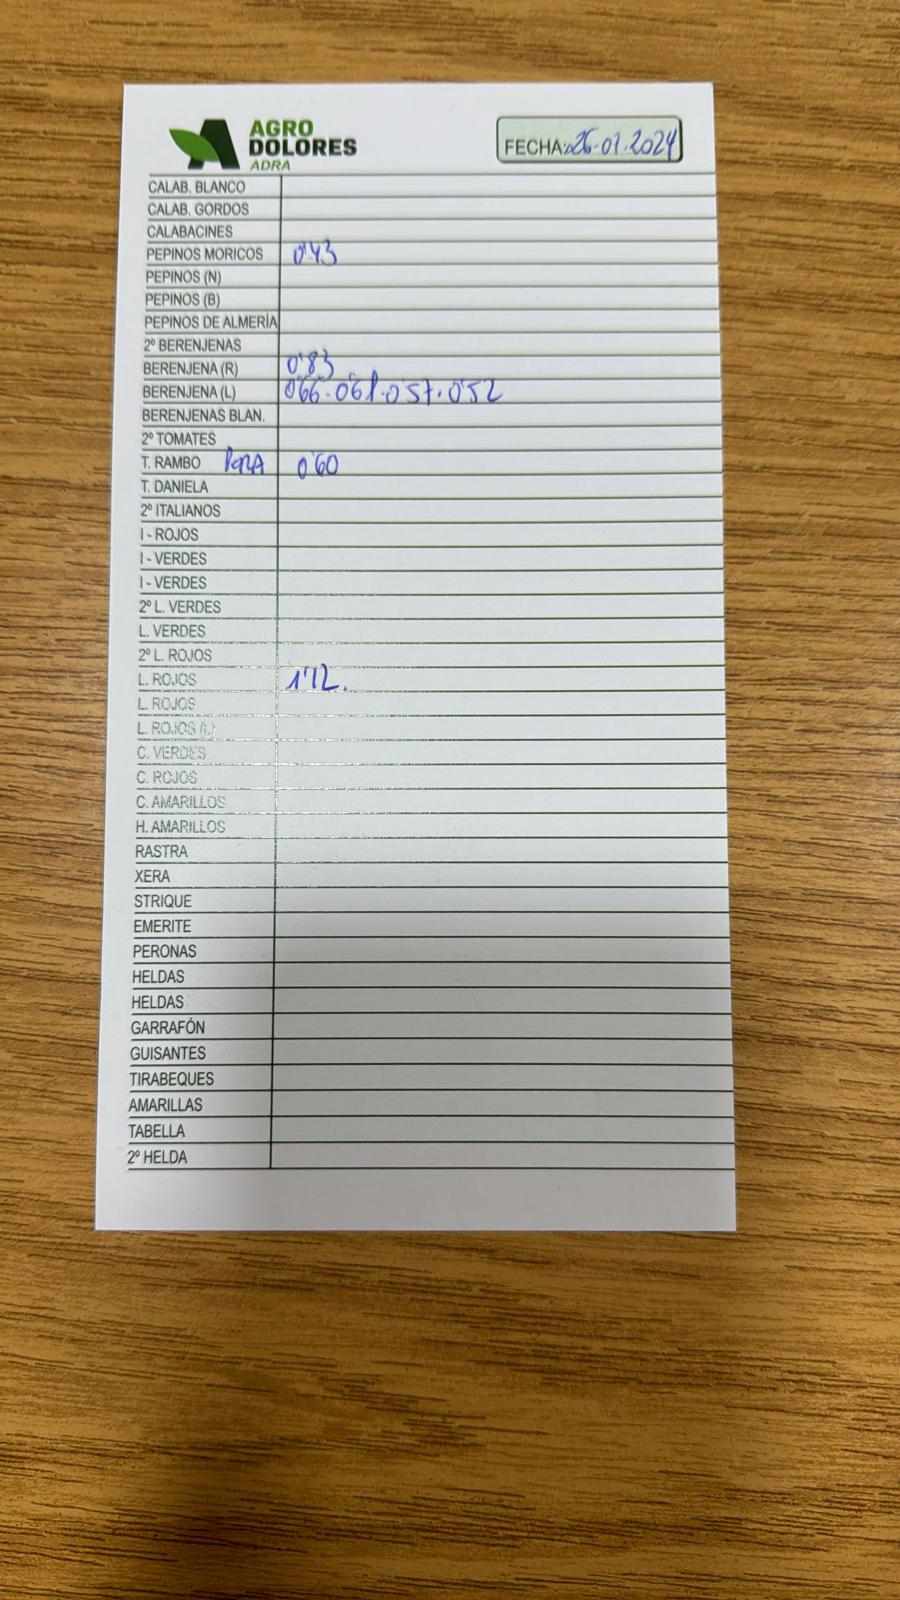 AGRO
DOLORES
ADRA
FECHA: 26-01-2024
CALAB. BLANCO
CALAB. GORDOS
CALABACINES
PEPINOS MORICOS 0'43
PEPINOS (N)
PEPINOS (B)
PEPINOS DE ALMERÍA
2º BERENJENAS
BERENJENA (R) 0'83
BERENJENA (L) 0'66-0'61-0'57-0'52
BERENJENAS BLAN.
2º TOMATES
T. RAMBO PERA 0'60
T. DANIELA
2º ITALIANOS
I - ROJOS
I - VERDES
I - VERDES
2º L. VERDES
L. VERDES
2º L. ROJOS
L. ROJOS 1'12.
L. ROJOS
L. ROJOS (L)
C. VERDES
C. ROJOS
C. AMARILLOS
H. AMARILLOS
RASTRA
XERA
STRIQUE
EMERITE
PERONAS
HELDAS
HELDAS
GARRAFÓN
GUISANTES
TIRABEQUES
AMARILLAS
TABELLA
2º HELDA